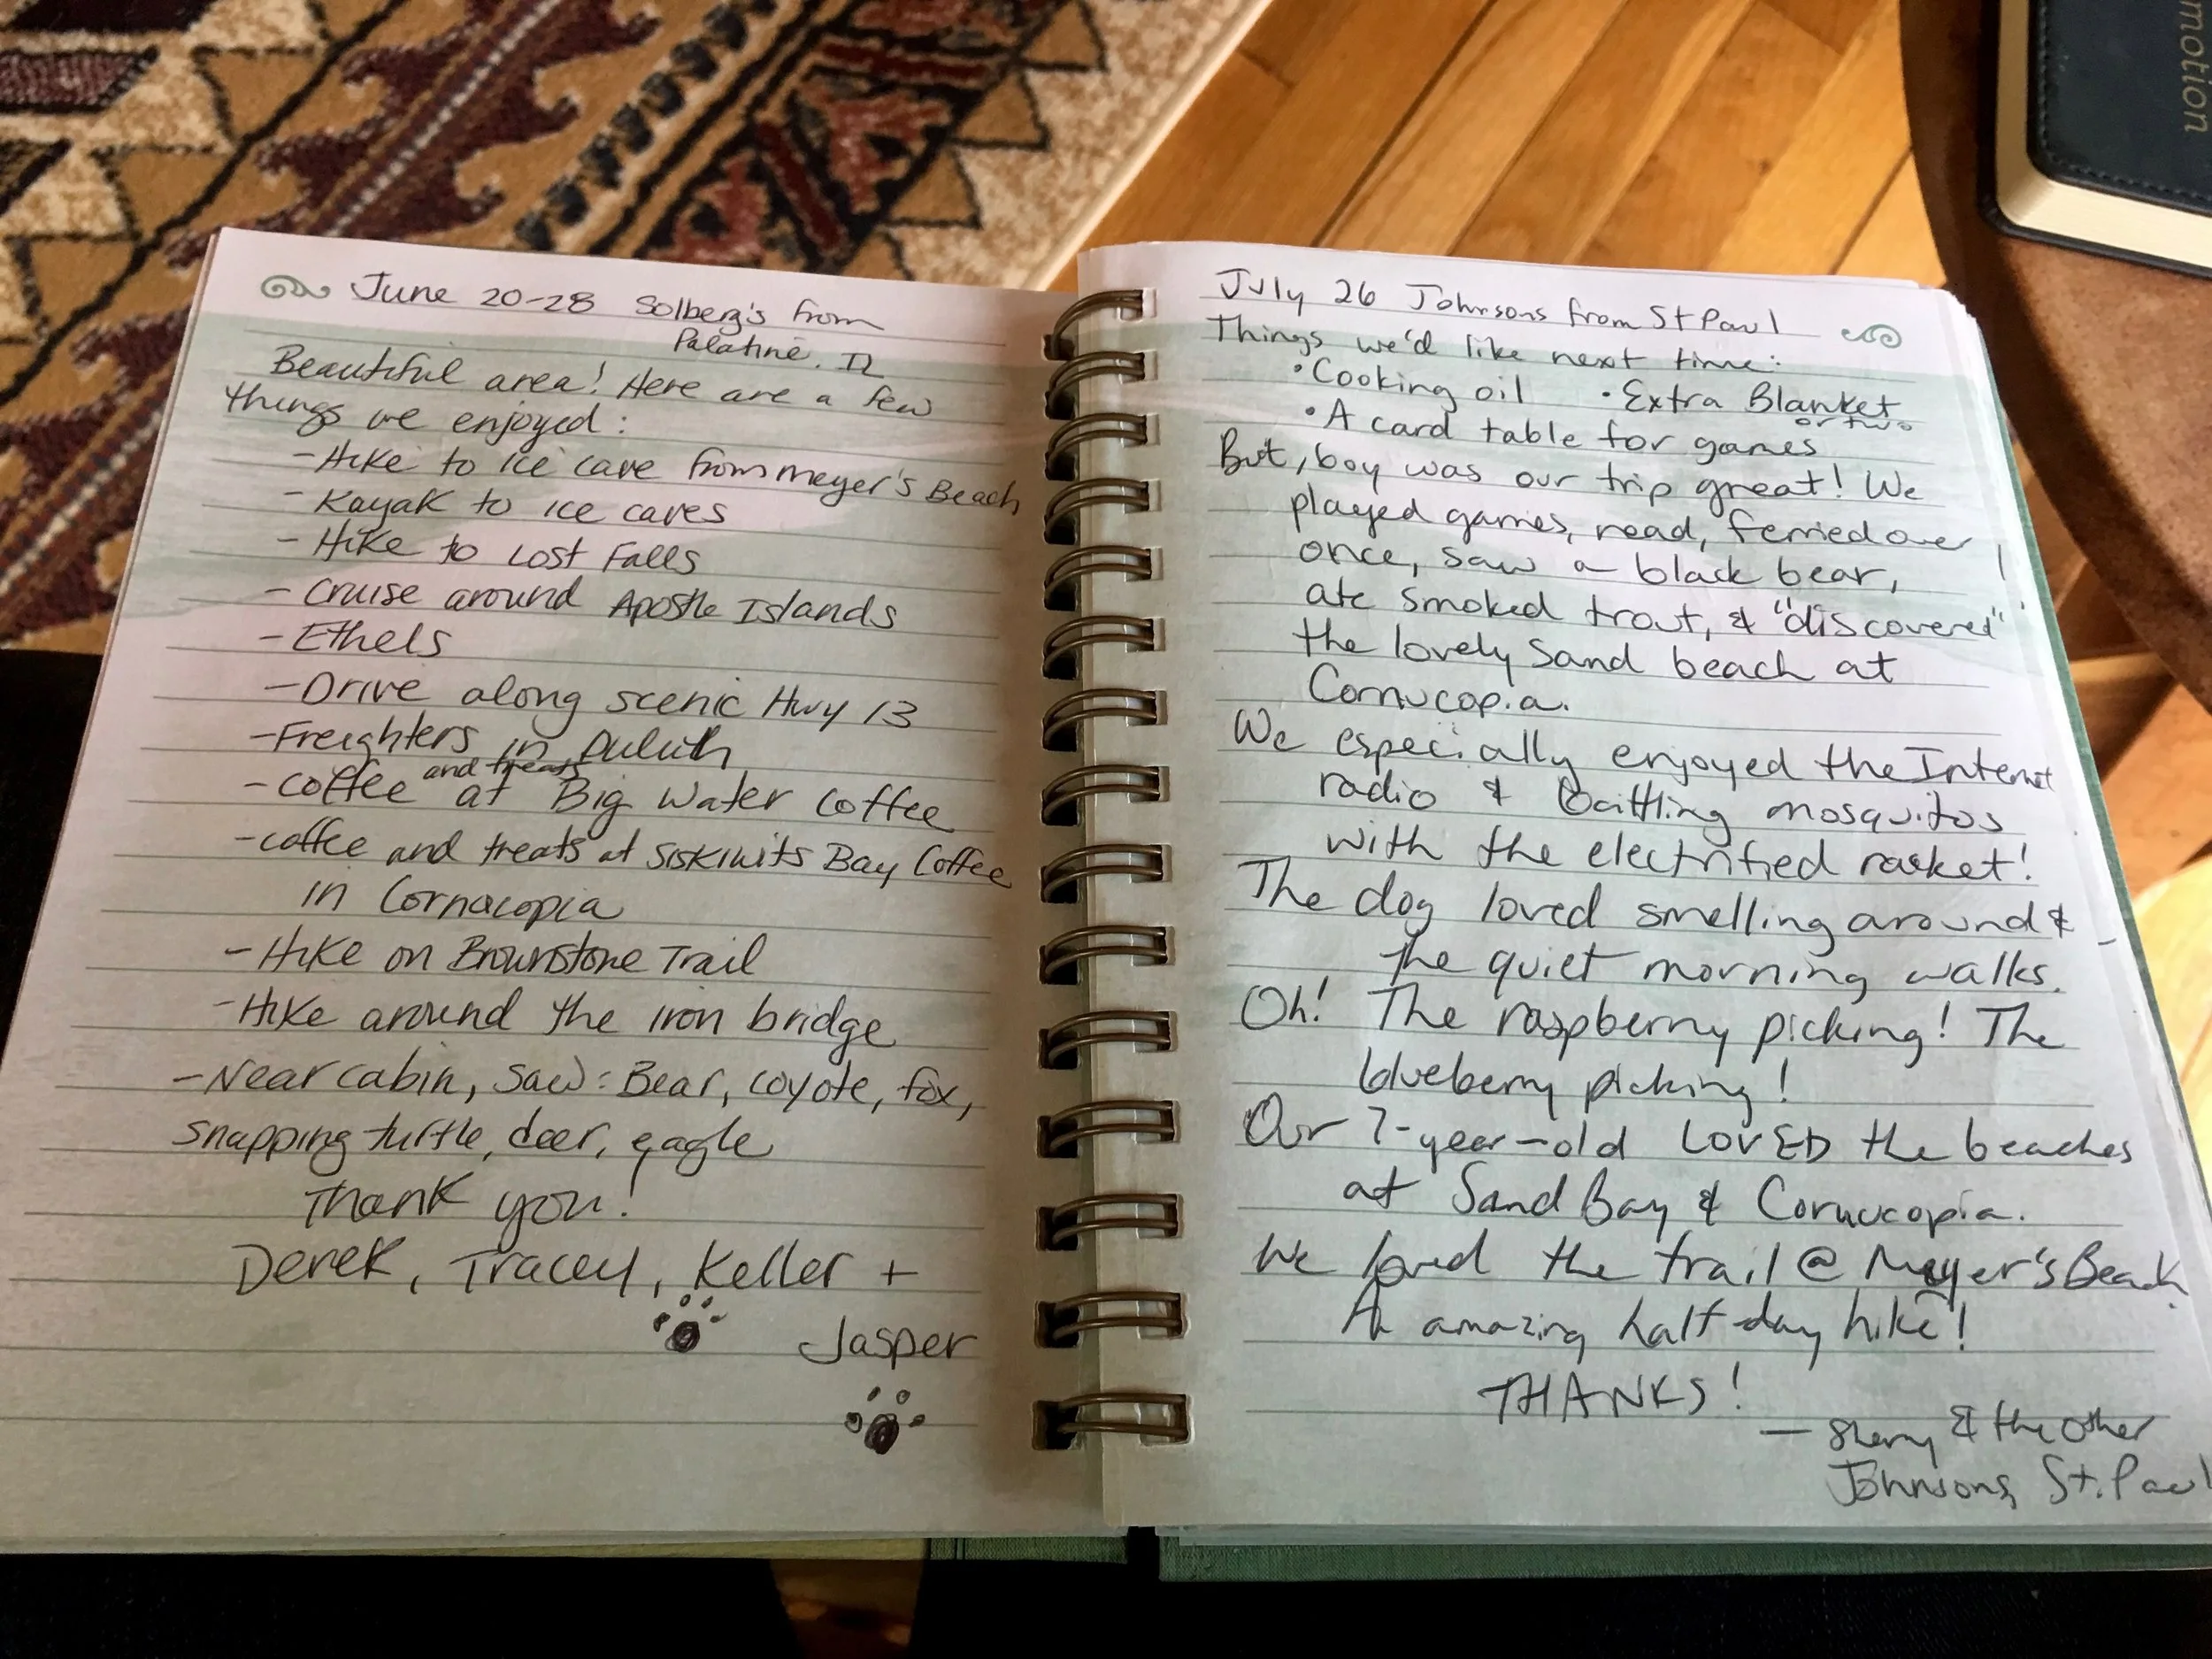 June 20-28 Solberg's from
Palatine, IL
Beautiful area! Here are a few
things we enjoyed:
- Hike to ice cave from meyer's Beach
- Kayak to ice caves
- Hike to Lost Falls
- Cruise around Apostle Islands
- Ethels
- Drive along scenic Hwy 13
- Freighters in Duluth
- Coffee and treats at Big Water Coffee
- coffee and treats at Siskiwits Bay Coffee
in Cornacopia
- Hike on Brownstone Trail
- Hike around the iron bridge
- Near cabin, saw: Bear, coyote, fox,
snapping turtle, deer, eagle
Thank you!
Derek, Tracey, Keller +
Jasper
July 26 Johnsons from St Paul
Things we'd like next time:
• Cooking oil • Extra Blanket
or two
• A card table for games
But, boy was our trip great! We
played games, read, ferried over
once, saw a black bear,
ate smoked trout, & "discovered"
the lovely sand beach at
Cornucopia.
We especially enjoyed the Internet
radio & battling mosquitos
with the electrified racket!
The dog loved smelling around &
the quiet morning walks.
Oh! The raspberry picking! The
blueberry picking!
Our 7-year-old LOVED the beaches
at Sand Bay & Cornucopia.
We loved the trail @ Meyer's Beach.
An amazing half-day hike!
THANKS!
— Sherry & the other
Johnsons, St. Paul
motion